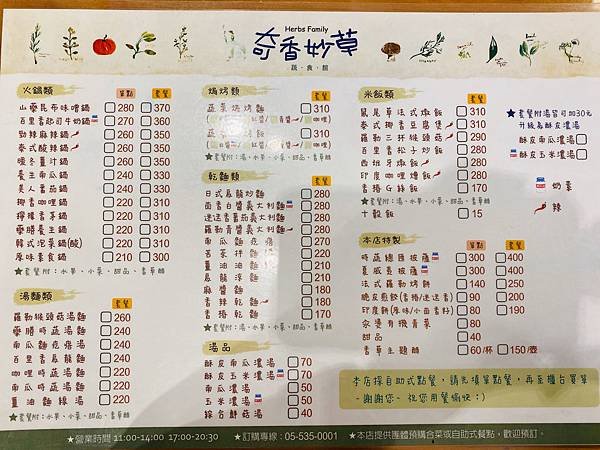 Herbs Family
奇香妙草
蔬·食·館
火鍋類 單點 套餐
山藥昆布味噌鍋 280 370
百里香起司牛奶鍋 270 360
勁辣麻辣鍋 260 350
泰式酸辣鍋 260 350
暖冬薑汁鍋 260 350
養生南瓜鍋 260 350
美人番茄鍋 240 330
椰香咖哩鍋 240 330
檸檬香茅鍋 240 330
藥膳養生鍋 220 310
韓式泡菜鍋(酸) 220 310
原味素食鍋 220 310
★套餐附:水果、小菜、甜品、香草醋
湯麵類 套餐
羅勒猴頭菇湯麵 260
藥膳時蔬湯麵 240
泰式時蔬湯麵 240
百里香烏龍麵 240
咖哩時蔬湯麵 220
南瓜時蔬湯麵 220
薑油麵線湯 220
★套餐附:水果、小菜、甜品、香草醋
焗烤類 套餐
蔬菜焗烤麵 310
蔬菜焗烤飯 310
★套餐附:湯、水果、小菜、甜品、香草醋
乾麵類 套餐
日式烏龍炒麵 280
南香白醬義大利麵 280
迷迭香蕃茄義大利麵 280
羅勒青醬義大利麵 280
南瓜麵疙瘩 280
苦茶拌麵線 220
薑油油麵線 220
烏龍涼麵 210
麻醬麵 180
香辣乾麵 180
香椿乾麵 170
湯品 套餐
酥皮南瓜濃湯 70
酥皮玉米濃湯 70
南瓜濃湯 50
玉米濃湯 50
綜合鮮菇湯 40
米飯類 套餐
鼠尾草法式燉飯 310
泰式椰香豆腐煲 310
羅勒三杯猴頭菇 290
百里香松子炒飯 280
西班牙燉飯 280
印度咖哩燴飯 280
香椿G絲飯 170
十穀飯 15
★套餐附:湯、水果、小菜、甜品、香草醋
★套餐附湯皆可加30元
升級為酥皮濃湯
酥皮南瓜濃湯
酥皮玉米濃湯
奶素
辣
本店特製 單點 套餐
時蔬總匯披薩 300 400
夏威夷披薩 300 400
法式羅勒烤餅 140 250
脆皮煎餃(香椿/迷迭香) 90 200
印度餅(原味/小茴香籽) 80 190
汆燙有機青菜 80
甜品 40
香草主題醋 60/杯 150/壺
本店採自助式點餐，請先填單點餐，再至櫃台買單
~謝謝您~ 祝您用餐愉快:)
★營業時間 11:00-14:00 17:00-20:30 ★訂購專線:05-535-0001 ★本店提供團體預購合菜或自助式餐點，歡迎預訂。